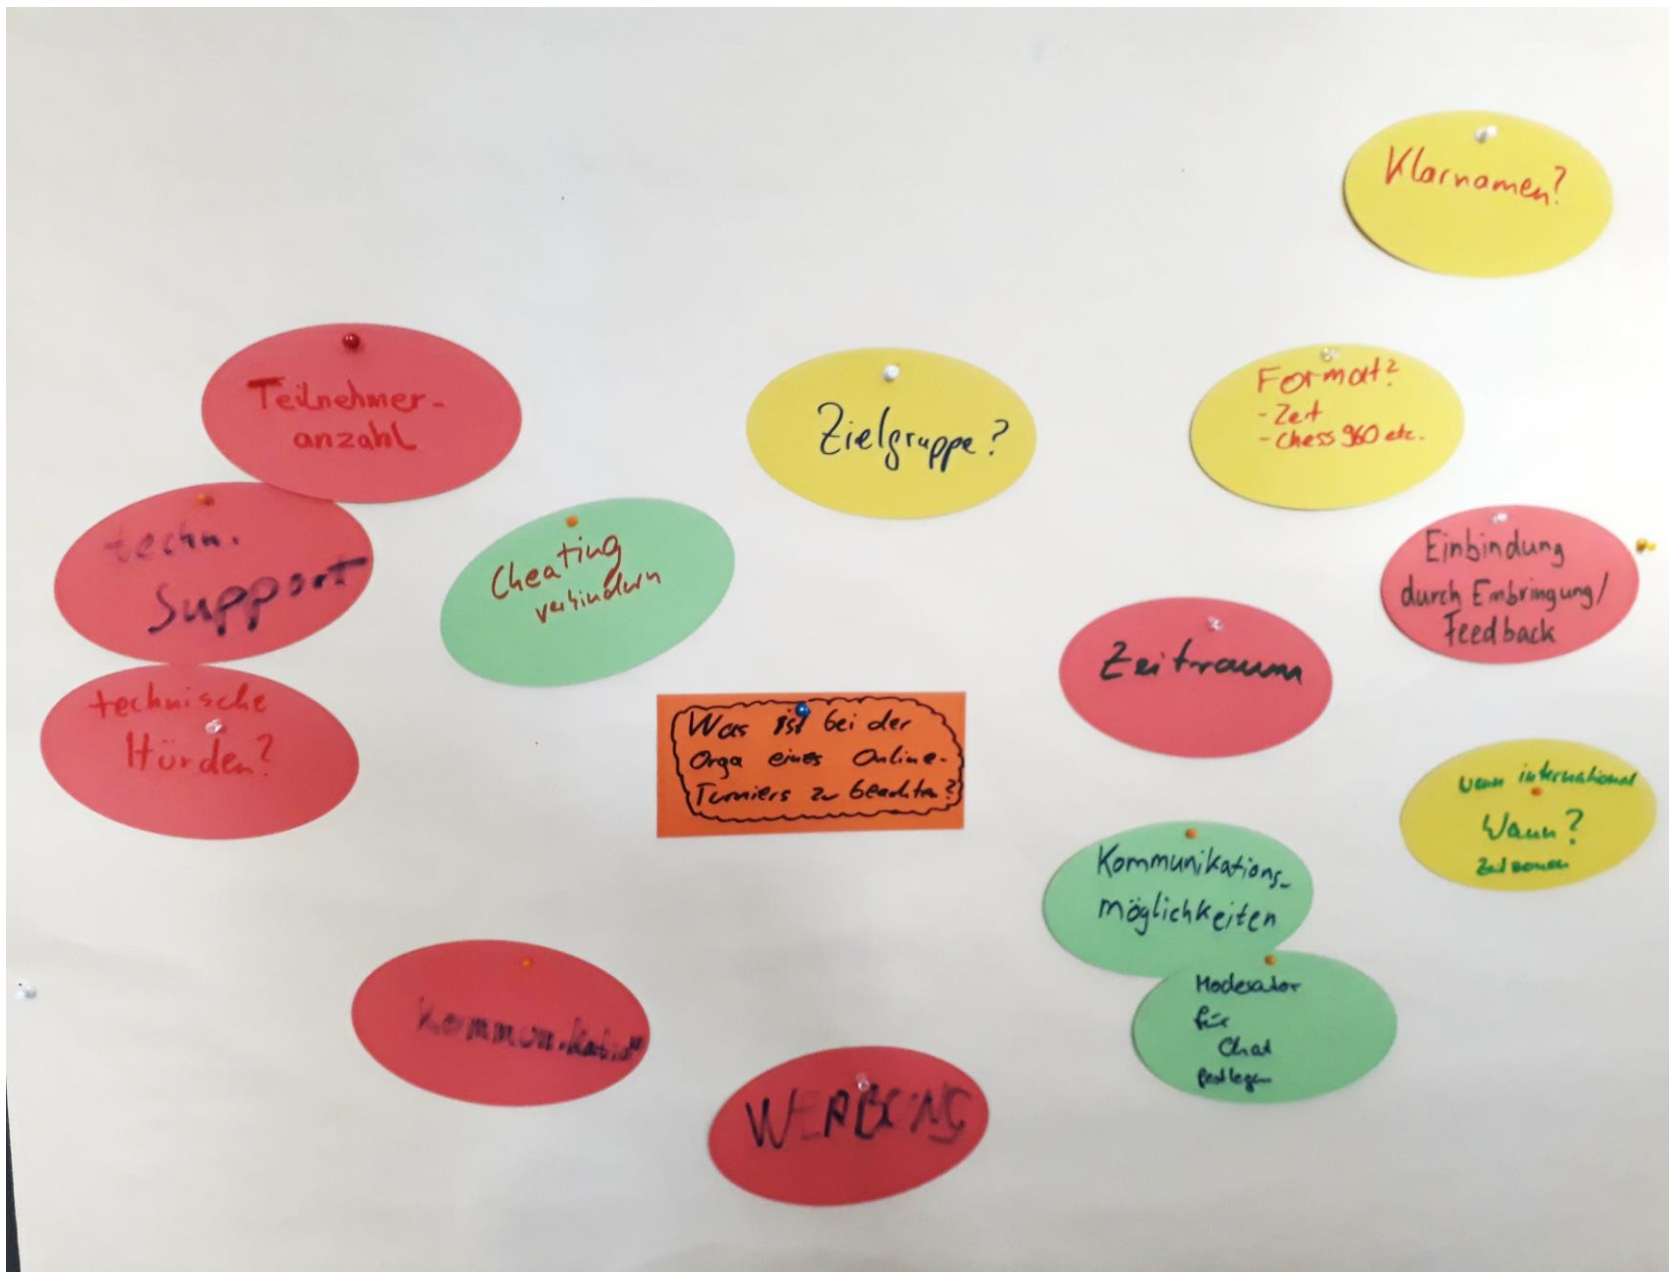 Klarnamen?
Teilnehmer-
anzahl
Zielgruppe?
Format?
- Zeit
- Chess 960 etc.
techn.
Support
Cheating
verhindern
Einbindung
durch Einbringung/
Feedback
Zeitraum
technische
Hürden?
Was ist bei der
Orga eines Online-
Turniers zu beachten?
wenn international
Wann?
Zeitzonen
Kommunikations-
möglichkeiten
Moderator
für
Chat
festlegen
Kommunikation
WERBUNG